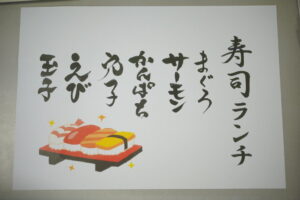 寿司ランチ
まぐろ
サーモン
かんぱち
穴子
えび
玉子